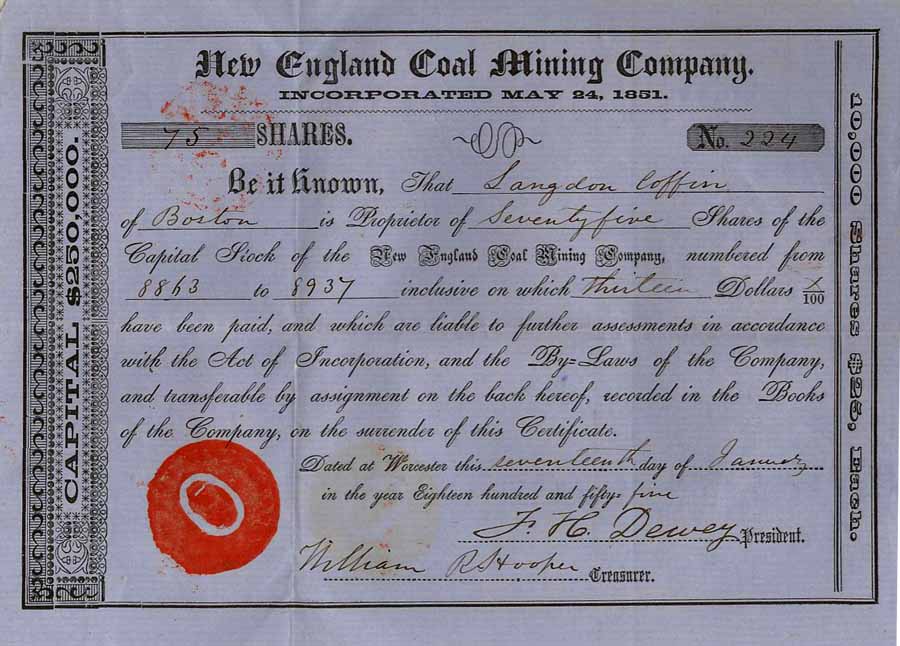 New England Coal Mining Company.
INCORPORATED MAY 24, 1851.
75 SHARES. No. 224
Be it Known, That Langdon Coffin
of Boston is Proprietor of Seventyfive Shares of the
Capital Stock of the New England Coal Mining Company, numbered from
8863 to 8937 inclusive on which thirteen Dollars x/100
have been paid, and which are liable to further assessments in accordance
with the Act of Incorporation, and the By=Laws of the Company,
and transferable by assignment on the back hereof, recorded in the Books
of the Company, on the surrender of this Certificate.
Dated at Worcester this seventeenth day of January
in the year Eighteen hundred and fifty-five
F. H. Dewey President.
William R Hooper Treasurer.
CAPITAL $250,000.
10,000 Shares $25, Each.